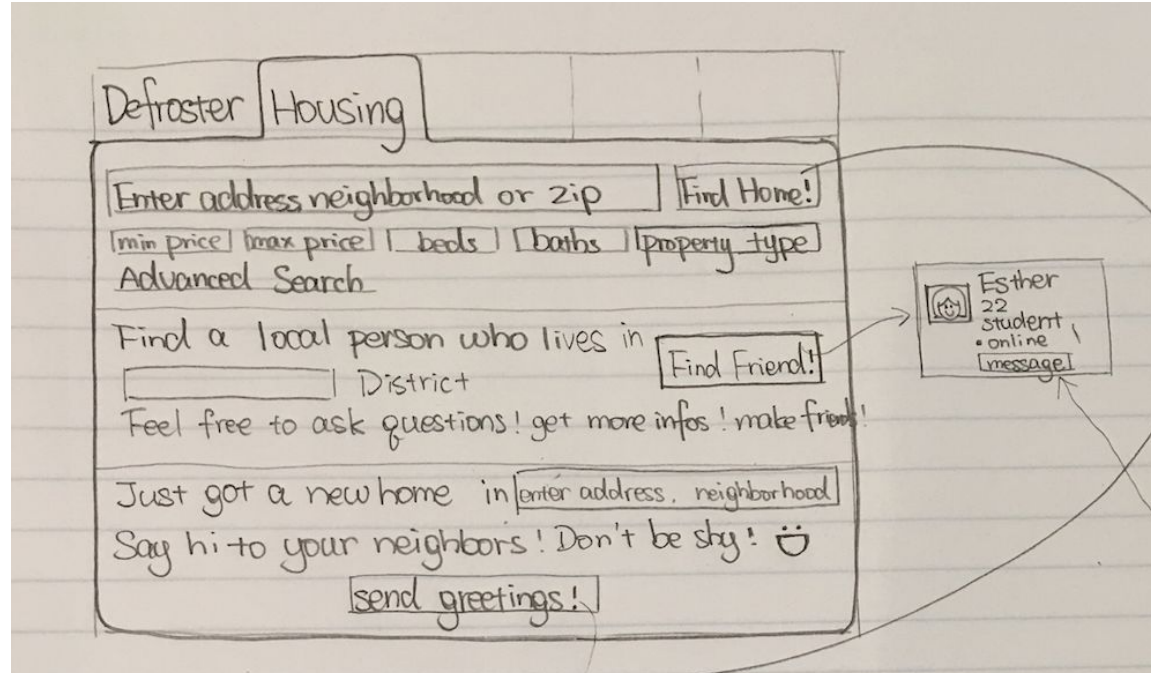 Defroster Housing
Enter address, neighborhood or zip Find Home!
min price max price beds baths property type
Advanced Search
Find a local person who lives in Find Friend!
District
Feel free to ask questions! get more infos! make friends!
Just got a new home in enter address, neighborhood
Say hi to your neighbors! Don't be shy!
send greetings!
Esther
22
student
• online
message